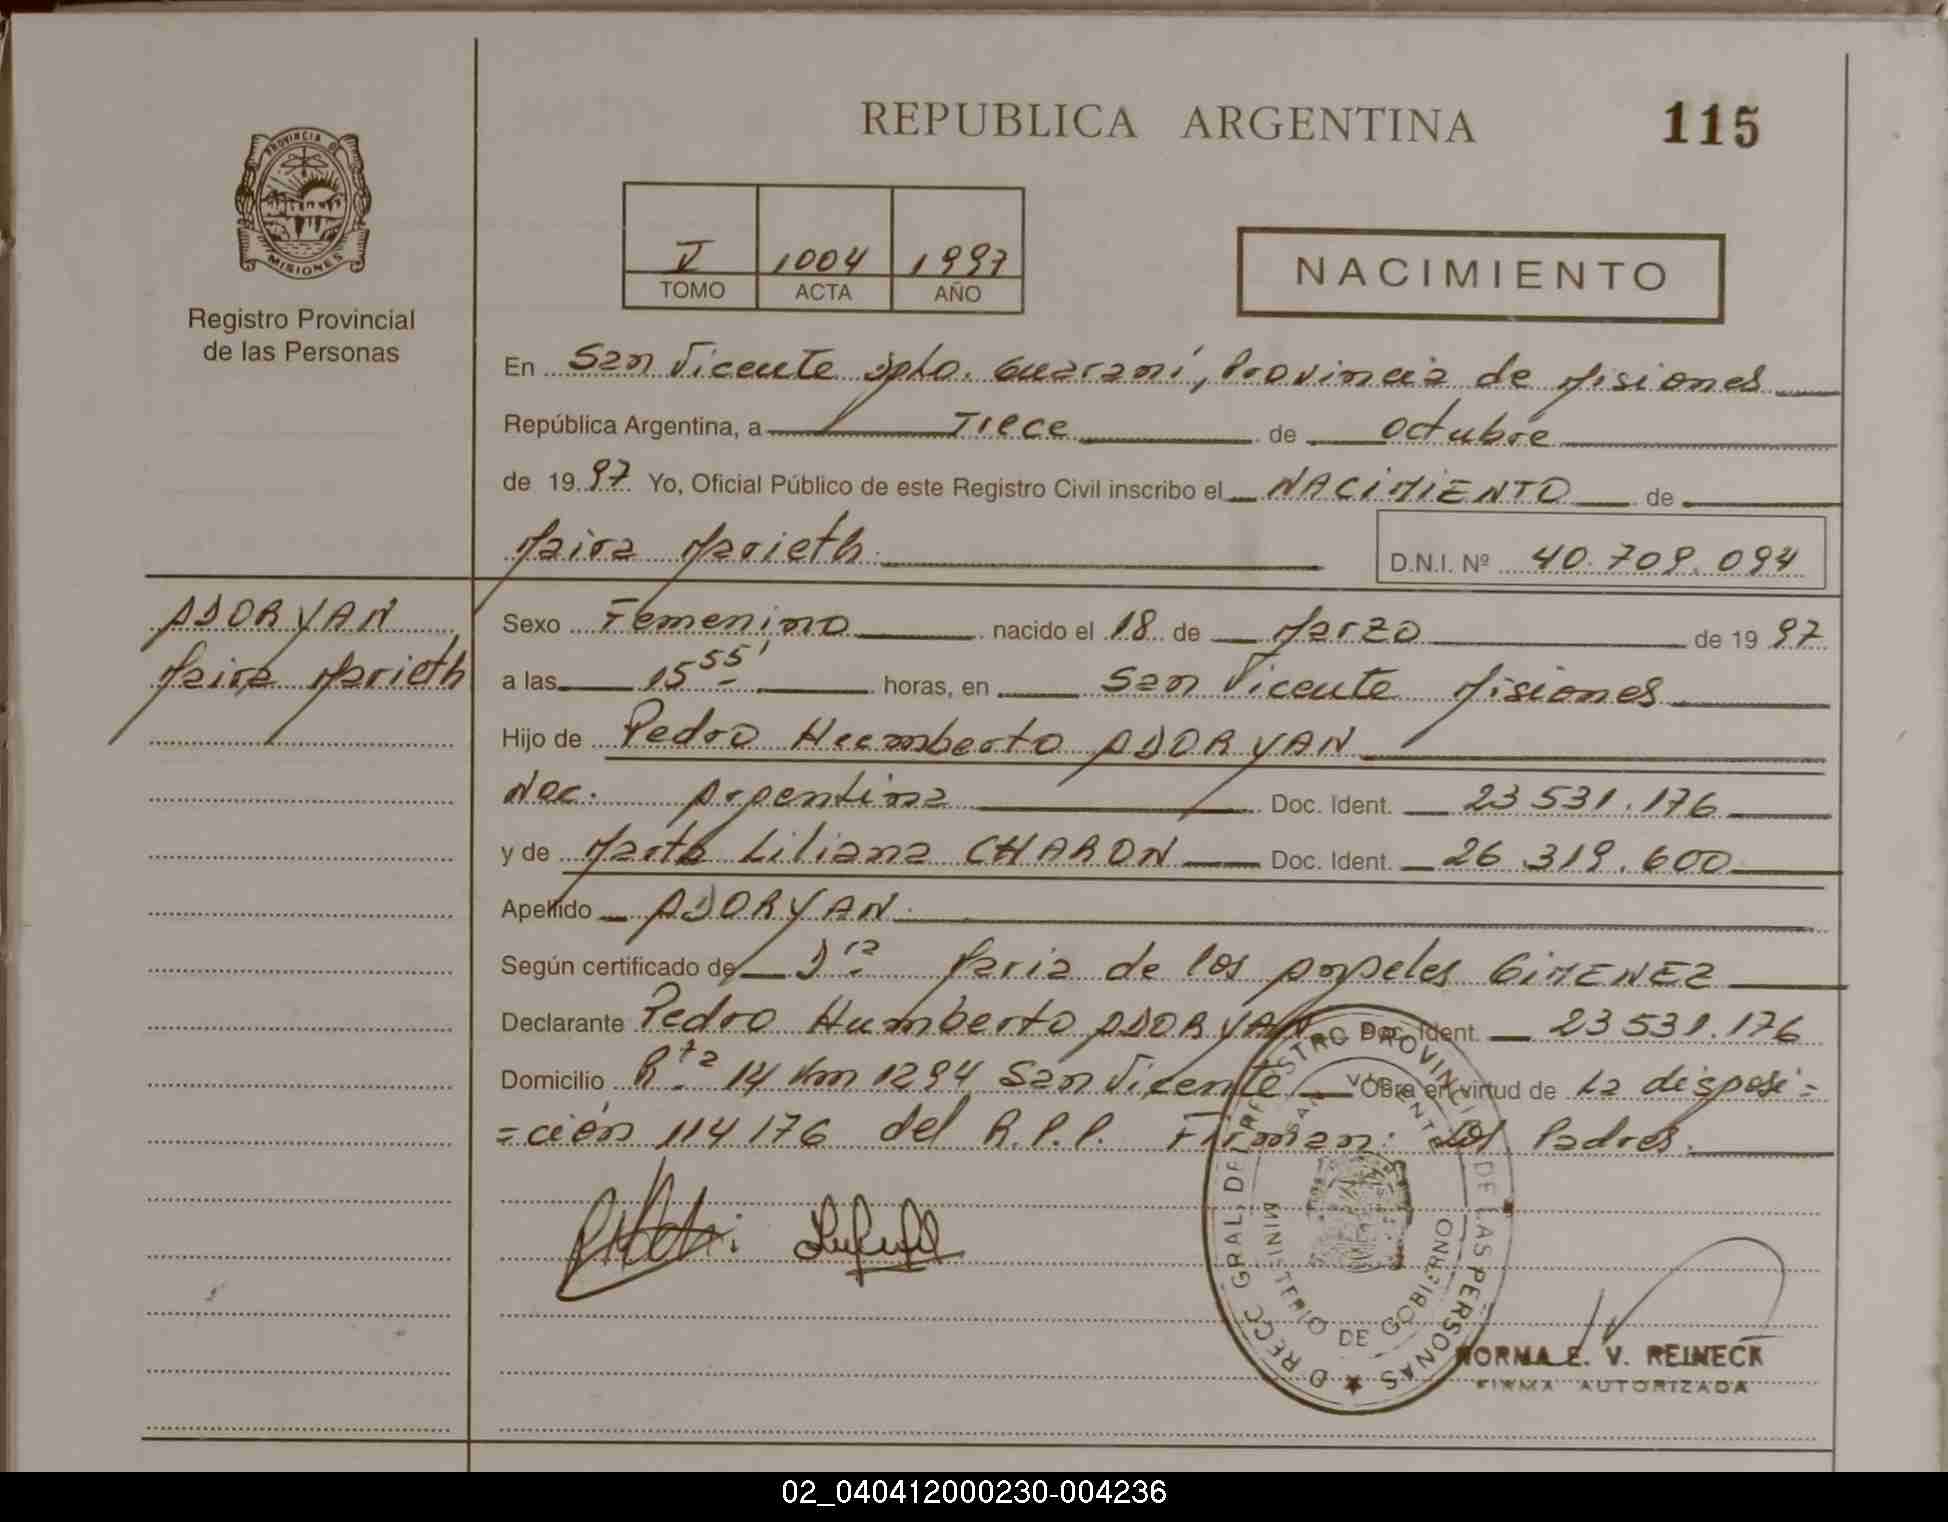 REPUBLICA ARGENTINA
115
PROVINCIA DE
MISIONES
Registro Provincial
de las Personas
V 1004 1997
TOMO ACTA AÑO
NACIMIENTO
En San Vicente Dpto. Guaraní, Provincia de Misiones
República Argentina, a Trece de Octubre
de 1997 Yo, Oficial Público de este Registro Civil inscribo el NACIMIENTO de
Maira Marieth D.N.I. Nº 40.709.094
ADORYAN
Maira Marieth
Sexo Femenino nacido el 18 de Marzo de 1997
a las 15 55' horas, en San Vicente Misiones
Hijo de Pedro Humberto ADORYAN
Nac. Argentina Doc. Ident. 23.531.176
y de Marta Liliana CHARON Doc. Ident. 26.319.600
Apellido ADORYAN
Según certificado de Dra María de los Angeles GIMENEZ
Declarante Pedro Humberto ADORYAN Doc. Ident. 23.531.176
Domicilio Rta 14 Km 1294 San Vicente Obra en virtud de La disposi=
=ción 114/76 del R.P.P. Firman: Los Padres.
DIRECC. GRAL. DEL REGISTRO PROVINCIAL DE LAS PERSONAS
SAN VICENTE
MINISTERIO DE GOBIERNO
NORMA E. V. REINECK
FIRMA AUTORIZADA
02_040412000230-004236